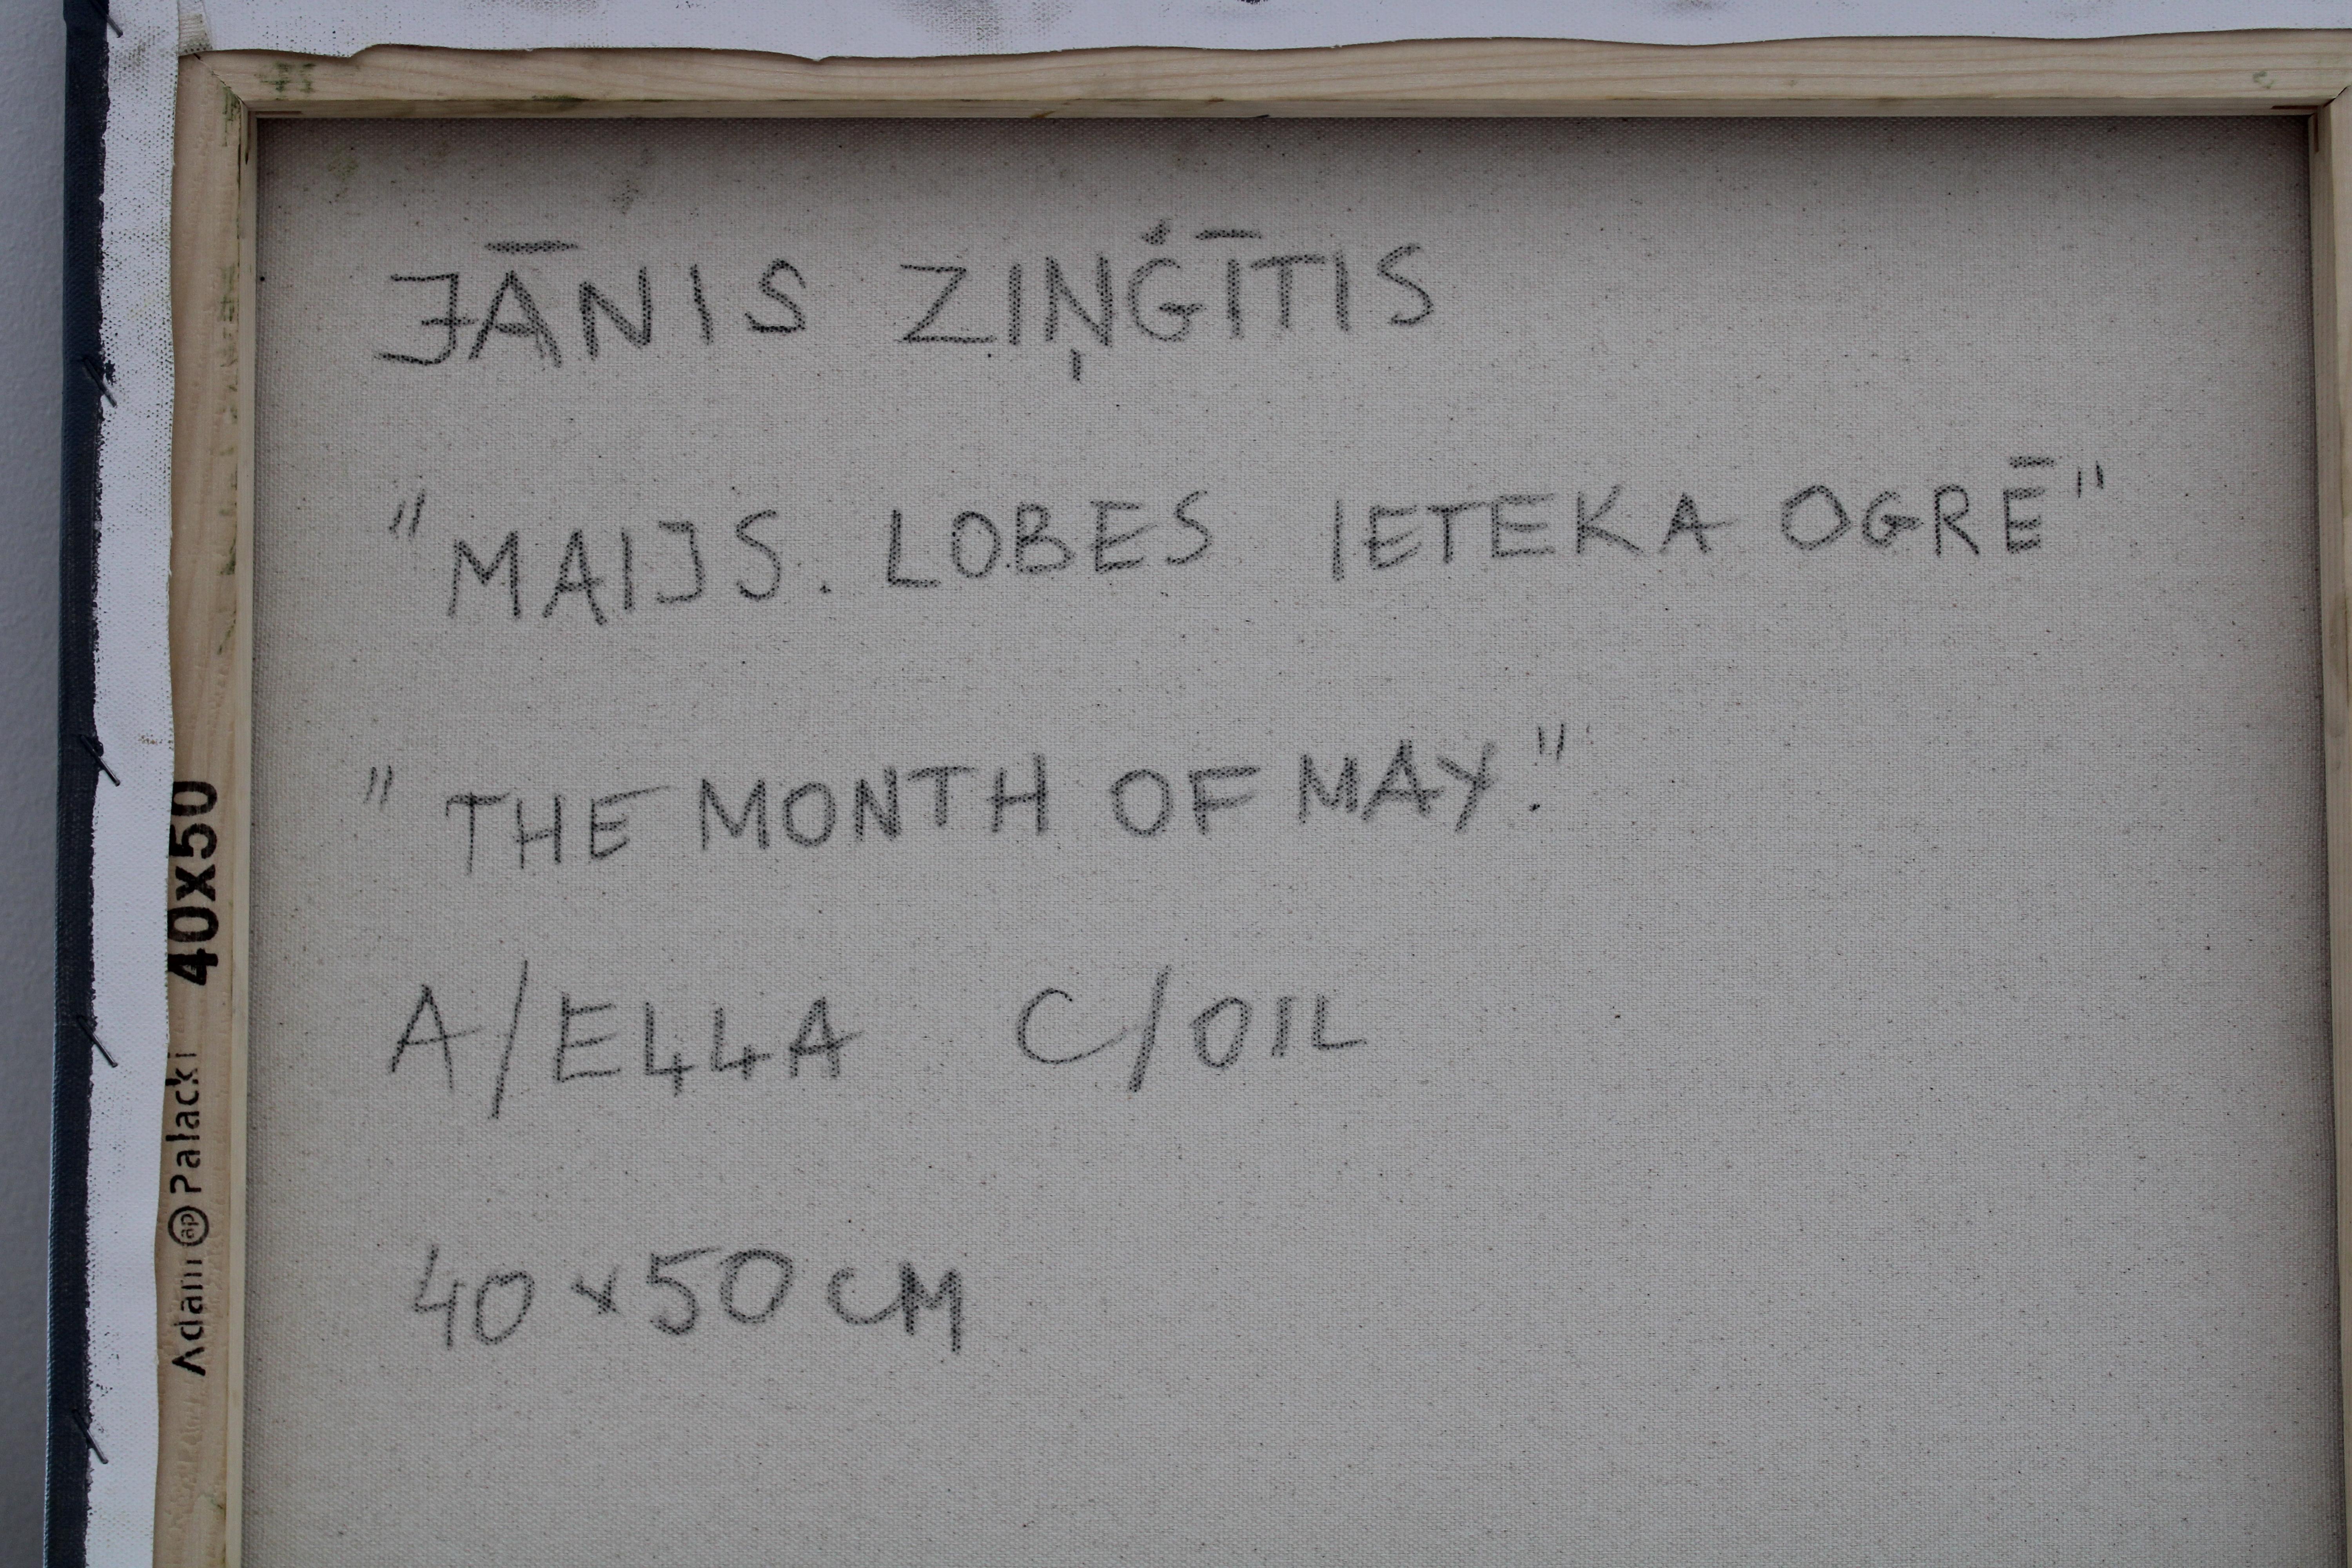 JĀNIS ZIŅĠĪTIS
"MAIJS. LOBES IETEKA OGRĒ"
"THE MONTH OF MAY."
A/EĻĻA C/OIL
40x50 CM
Adam ap Pałacki 40x50